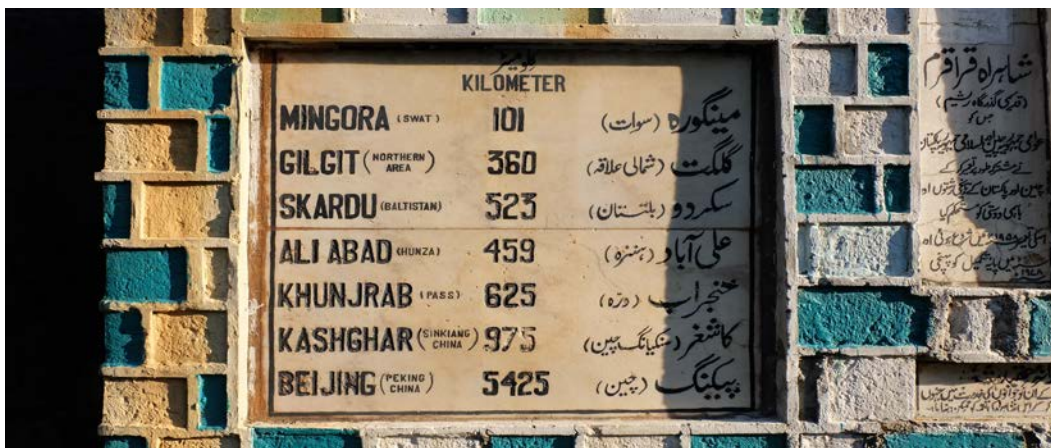 کلومیٹر
KILOMETER
MINGORA (SWAT) 101 مینگورہ (سوات)
GILGIT (NORTHERN AREA) 360 گلگت (شمالی علاقہ)
SKARDU (BALTISTAN) 523 سکردو (بلتستان)
ALI ABAD (HUNZA) 459 علی آباد (ہنزہ)
KHUNJRAB (PASS) 625 خنجراب (درہ)
KASHGHAR (SINKIANG CHINA) 975 کاشغر (سنکیانگ چین)
BEIJING (PEKING CHINA) 5425 پیکنگ (چین)
شاہراہ قراقرم
(قدیمی گذرگاہ ریشم)
جس کو
چین اور پاکستان کے